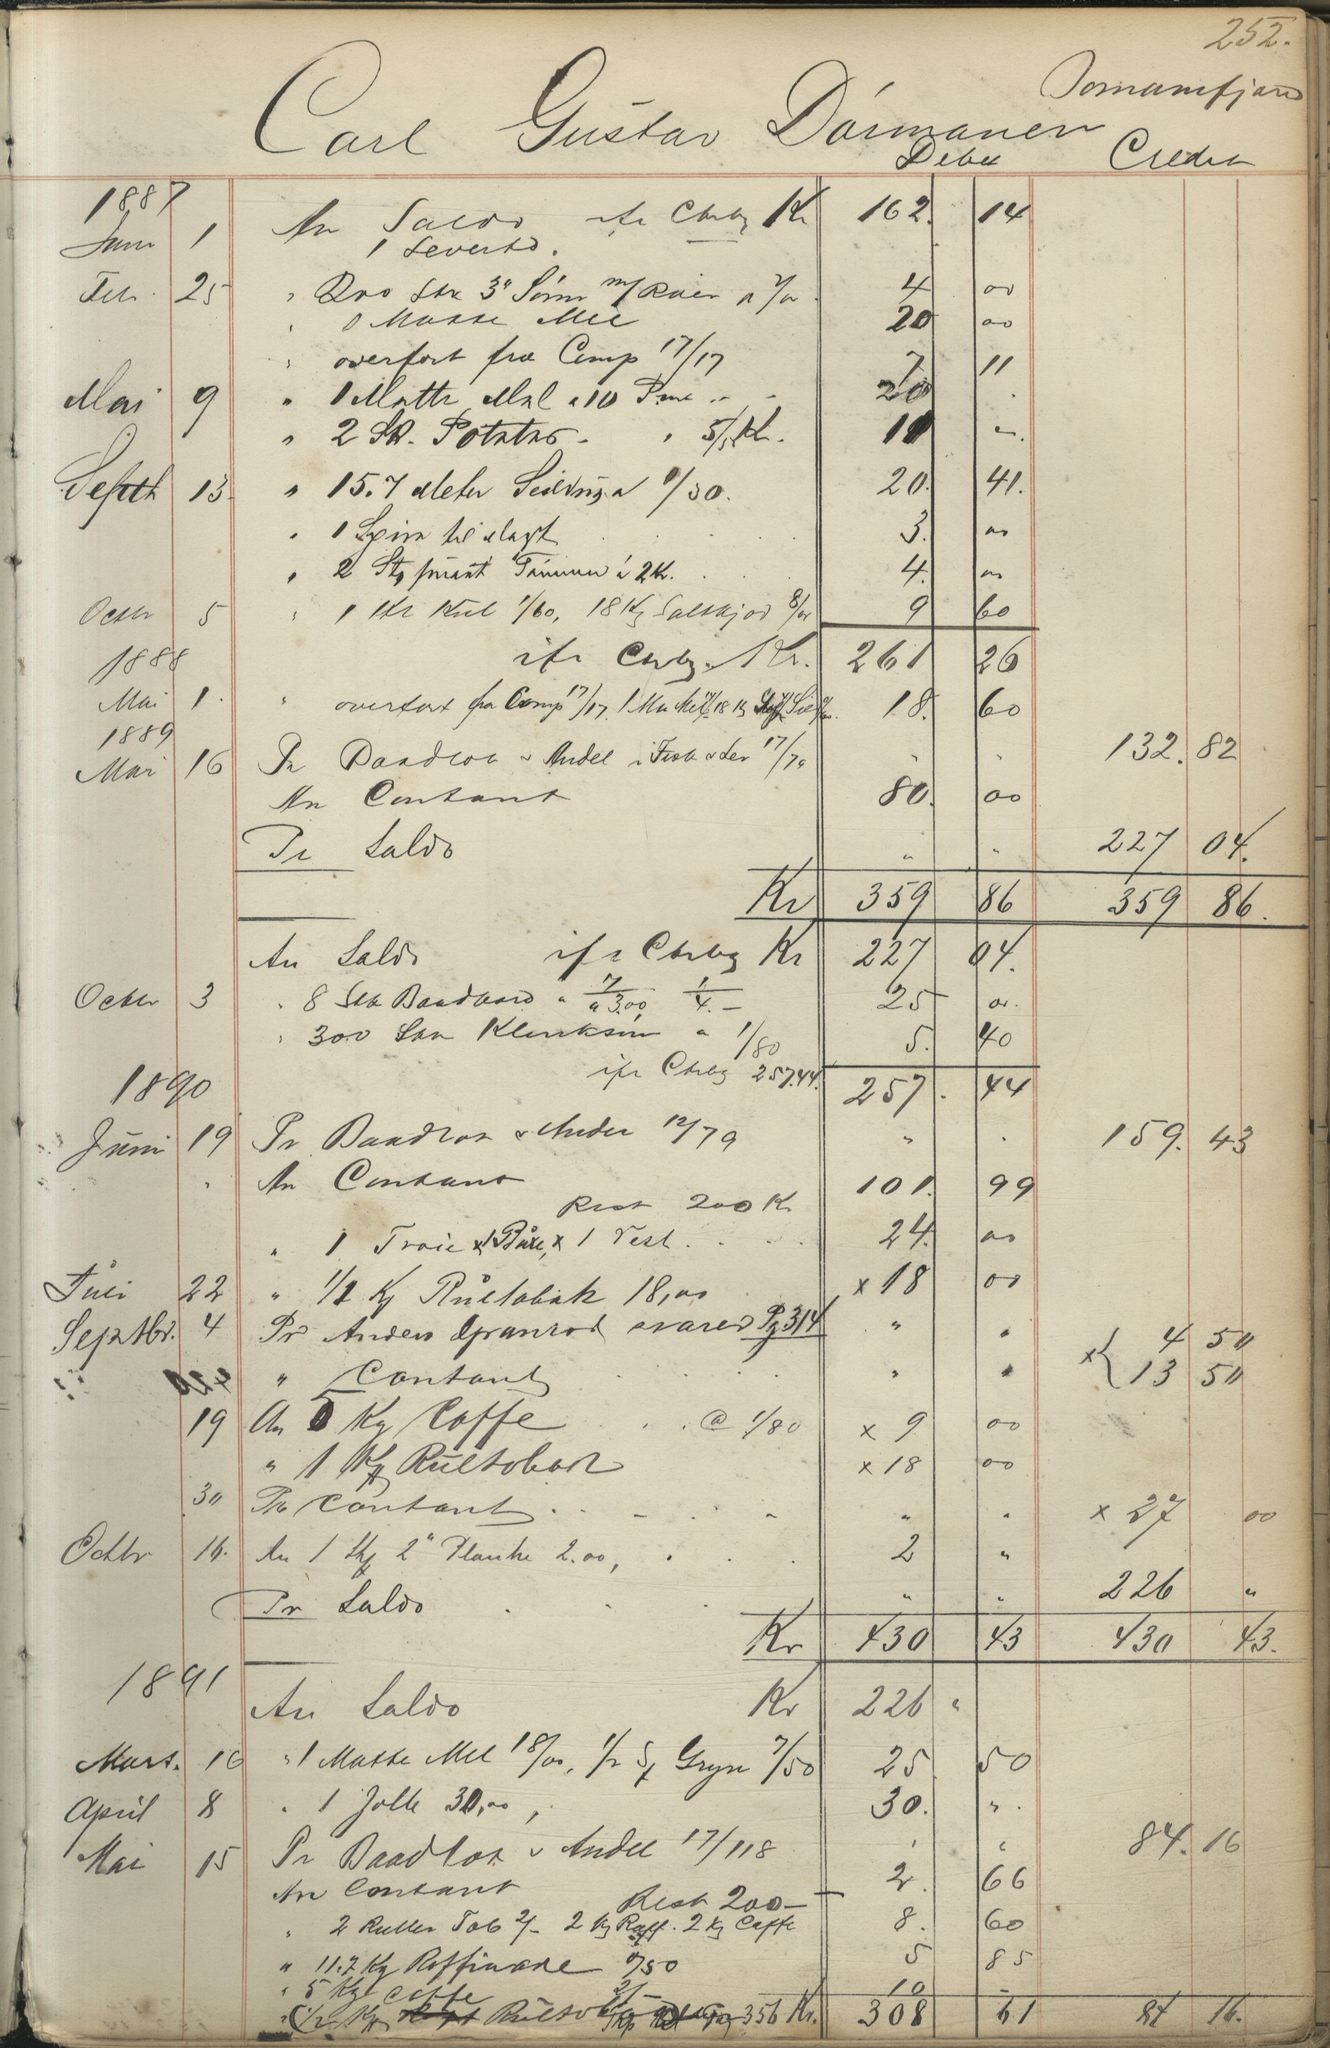 252.
Carl Gustav Dórmanen
Debet Credit
1887
Janr 1 An Saldo ifr Chrbg Kr 162. 14
1 Levertd.
Febr. 25 " 200 Stk 3" Sóm 4 00
" Matte Mel 20 00
" overfort fra Comp 17/17 7 11
Mai 9 " 1 Matte Mel a 10 20 .
" 2 Sk. Potetes - " 5/ Kr. 10 "
Septb 13 " 15.7 Meter /30. 20. 41.
" 1 Spira til slagt 3. 00
" 2 Stk Tömmer á 2 Kr. 4. 00
Octbr 5 " 1 1/60, 18 Kg Saltkjød 9 60
1888 ifr Chrbg. Kr. 261 26
Mai 1. " overfort fra Comp 17/17. 18. 60
1889
Mai 16 Pr Baadlot & Andel i Fisk 17/70 " " 132. 82
An Contant 80. 00
Pr Saldo " " 227 04.
Kr 359 86 359 86.
An Saldo ifr Chrbg Kr 227 04.
Octbr 3 " 8 Stk Baadbord a 7/a 3.00 1/4.- 25 00.
" 300 Stk Klinksöm a 1/80 5. 40
ifr Chrbg 257.44. 257. 44
1890
Juni 19 Pr Baadlot & Andel 12/79 " " 159. 43
" An Contant 101. 99
Rest 200 Kr
" 1 Troie x 1 Buxe, x 1 Vest. 24. 00
Juli 22 " 1/1 Kg Rultobak 18,00 x 18 00
Septbr. 4 Pr Anders Granrod svarer Pg 314 " " x{ 4 50
" Contant " " 13 50
19 An 5 Kg Caffe @ 1/80 x 9 00
" 1 Kg Rultobak x 18 00
30 Pr Contant " " x 27 00
Octbr 16. An 1 Stk 2" Planke 2.00, 2 "
Pr Saldo " " 226 "
Kr 430 43 430 43.
1891
An Saldo Kr 226 "
Marts. 16 " 1 Matte Mel 18/00, 1/2 Sk Gryn 7/50 25 50
April 8 " 1 Jolle 30,00, 30. "
Mai 15 Pr Baadlot & Andel 17/118 " " 84. 16
An Contant 2. 66
Rest 200-
" 2 Ruller Tob 2/- 2 Kg Raff. 2 Kg Caffe 8. 60
" 11.7 Kg Raffinade /50 5 85
" 5 Kg Caffe 2/- 10 -
" 1/2 Kg Rultobak 356 Kr. 308 61 84 16.